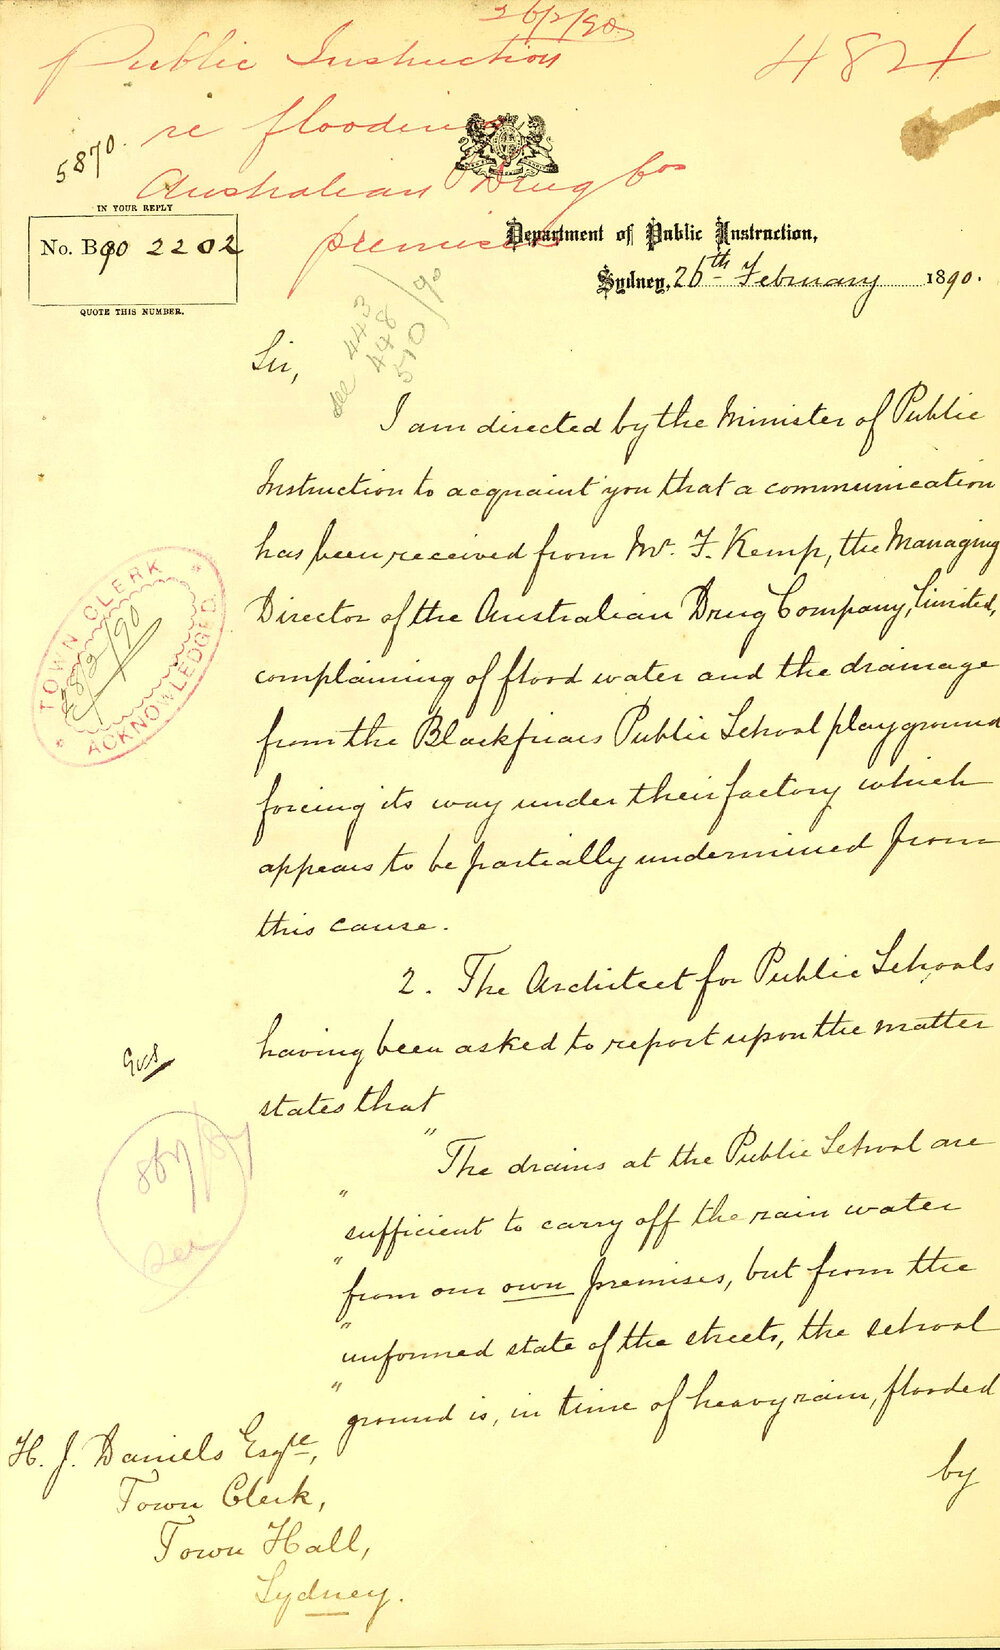 26/2/90
Public Instruction
4824
re flooding
5870.
Australian Drug Cos
premises
IN YOUR REPLY
No. B90 2202
QUOTE THIS NUMBER.
Department of Public Instruction,
Sydney, 26th February 1890.
see 443
448
510/90
Sir,
I am directed by the Minister of Public
Instruction to acquaint you that a communication
has been received from Mr. F. Kemp, the Managing
Director of the Australian Drug Company, Limited,
complaining of flood water and the drainage
from the Blackfriars Public School playground
forcing its way under their factory which
appears to be partially undermined from
this cause.
TOWN CLERK
28/2/90
ACKNOWLEDGED
2. The Architect for Public Schools
having been asked to report upon the matter
states that
" The drains at the Public School are
" sufficient to carry off the rain water
" from our own premises, but from the
" unformed state of the streets, the school
" ground is, in time of heavy rain, flooded
by
H. J. Daniels Esqre,
Town Clerk,
Town Hall,
Sydney.